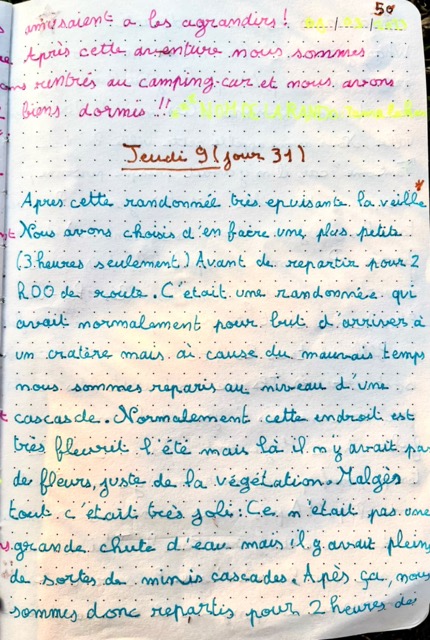 50
amusaient a les agrandirs !
Après cette aventure nous sommes
rentrés au camping-car et nous avons
biens dormis !!
Jeudi 9 (jour 31)
Apres cette randonnée très epuisante la veille
Nous avons choisis d'en faère une plus petite
(3 heures seulement) Avant de repartir pour 2
h00 de route. C'était une randonnée qui
avait normalement pour but d'arriver à
un cratère mais ai cause du mauvais temps
nous sommes reparis au niveau d'une
cascasde. Normalement cette endroit est
très fleurit l'été mais là il n'y avait pa
de fleurs, juste de la végétation. Malgès
tout c'était très joli : Ce n'était pas une
grande chute d'eau mais il y avait pleins
de sortes de minis cascades. Après ça, nous
sommes donc repartis pour 2 heures de